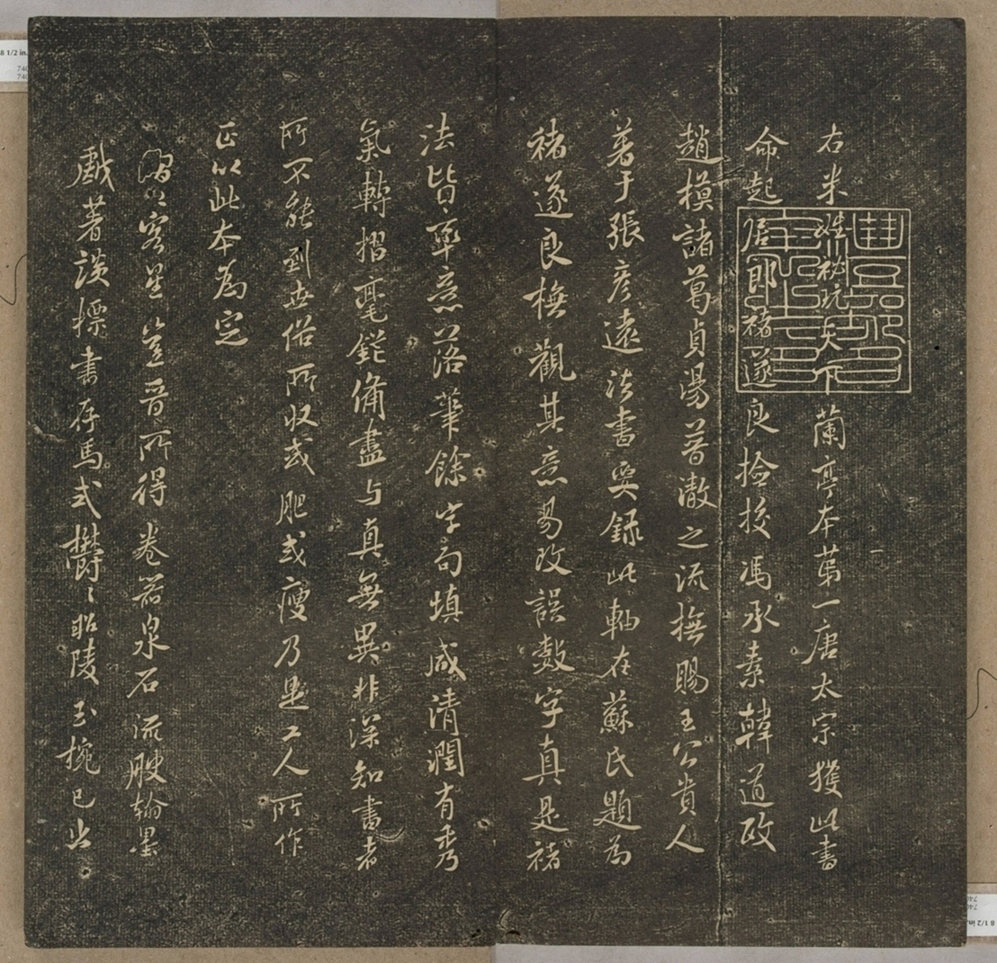 右米姓祕玩天下蘭亭本第一唐太宗獲此書
命起居郎褚遂良撿挍馮承素韓道政
趙模諸葛貞湯普澈之流撫賜王公貴人
著于張彥遠法書要錄此軸在蘇氏題為
褚遂良撫觀其意易改誤數字真是褚
法皆率意落筆餘字句填咸清潤有秀
氣轉摺毫鋩備盡与真無異非深知書者
所不能到世俗所收或肥或瘦乃是工人所作
正以此本為定
熠熠客星豈晉所得卷器泉石流腴翰墨
戲著談標書存馬式鬱〻昭陵玉椀已出
8 1/2 in.
8 1/2 in.